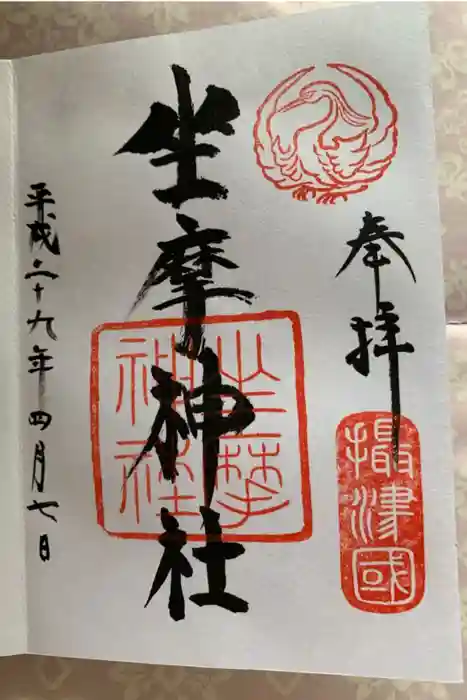 奉拝
攝津國
坐摩神社
坐摩神社
平成二十九年四月七日